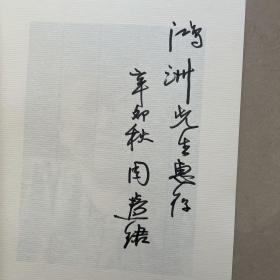 鸿洲先生惠存
辛卯秋 周